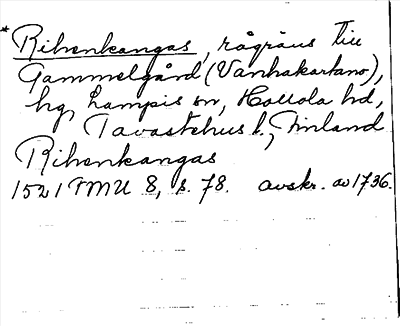 * Rihenkangas, rågräns till
Gammelgård (Vanhakartano),
hg, Lampis sn, Hollola hd,
Tavastehus l., Finland
Rihenkangas
1521 FMU 8, s. 78. avskr. av 1736.